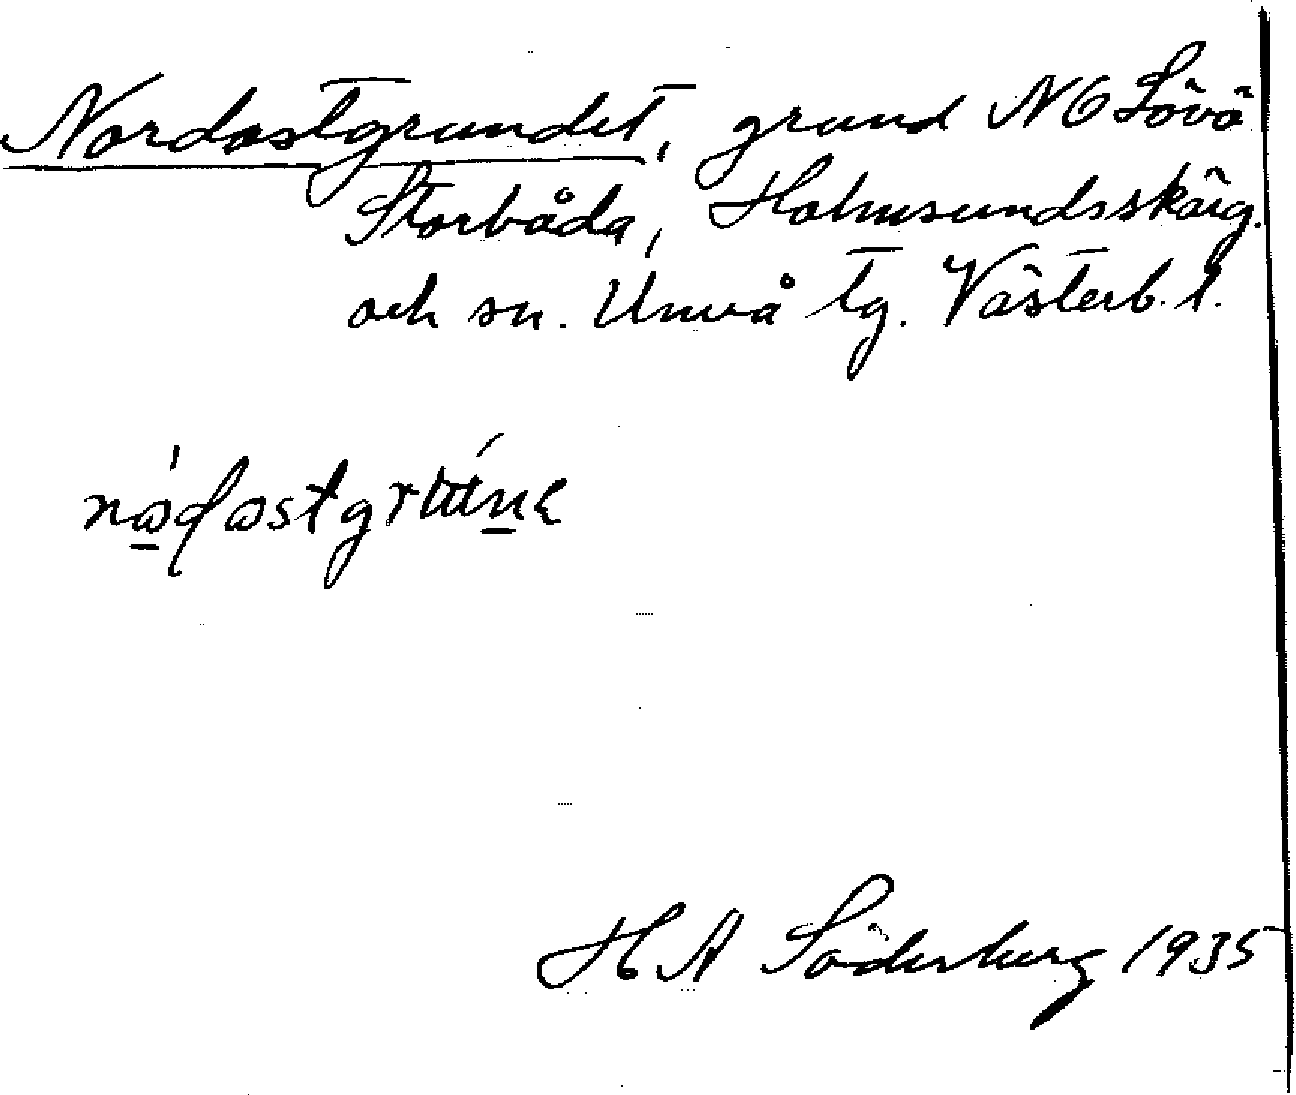 Nordostgrundet, grund NO Lövö
Storbåda, Holmsundsskärg.
och sn. Umeå tg. Västerb. l.
H A Söderberg 1935